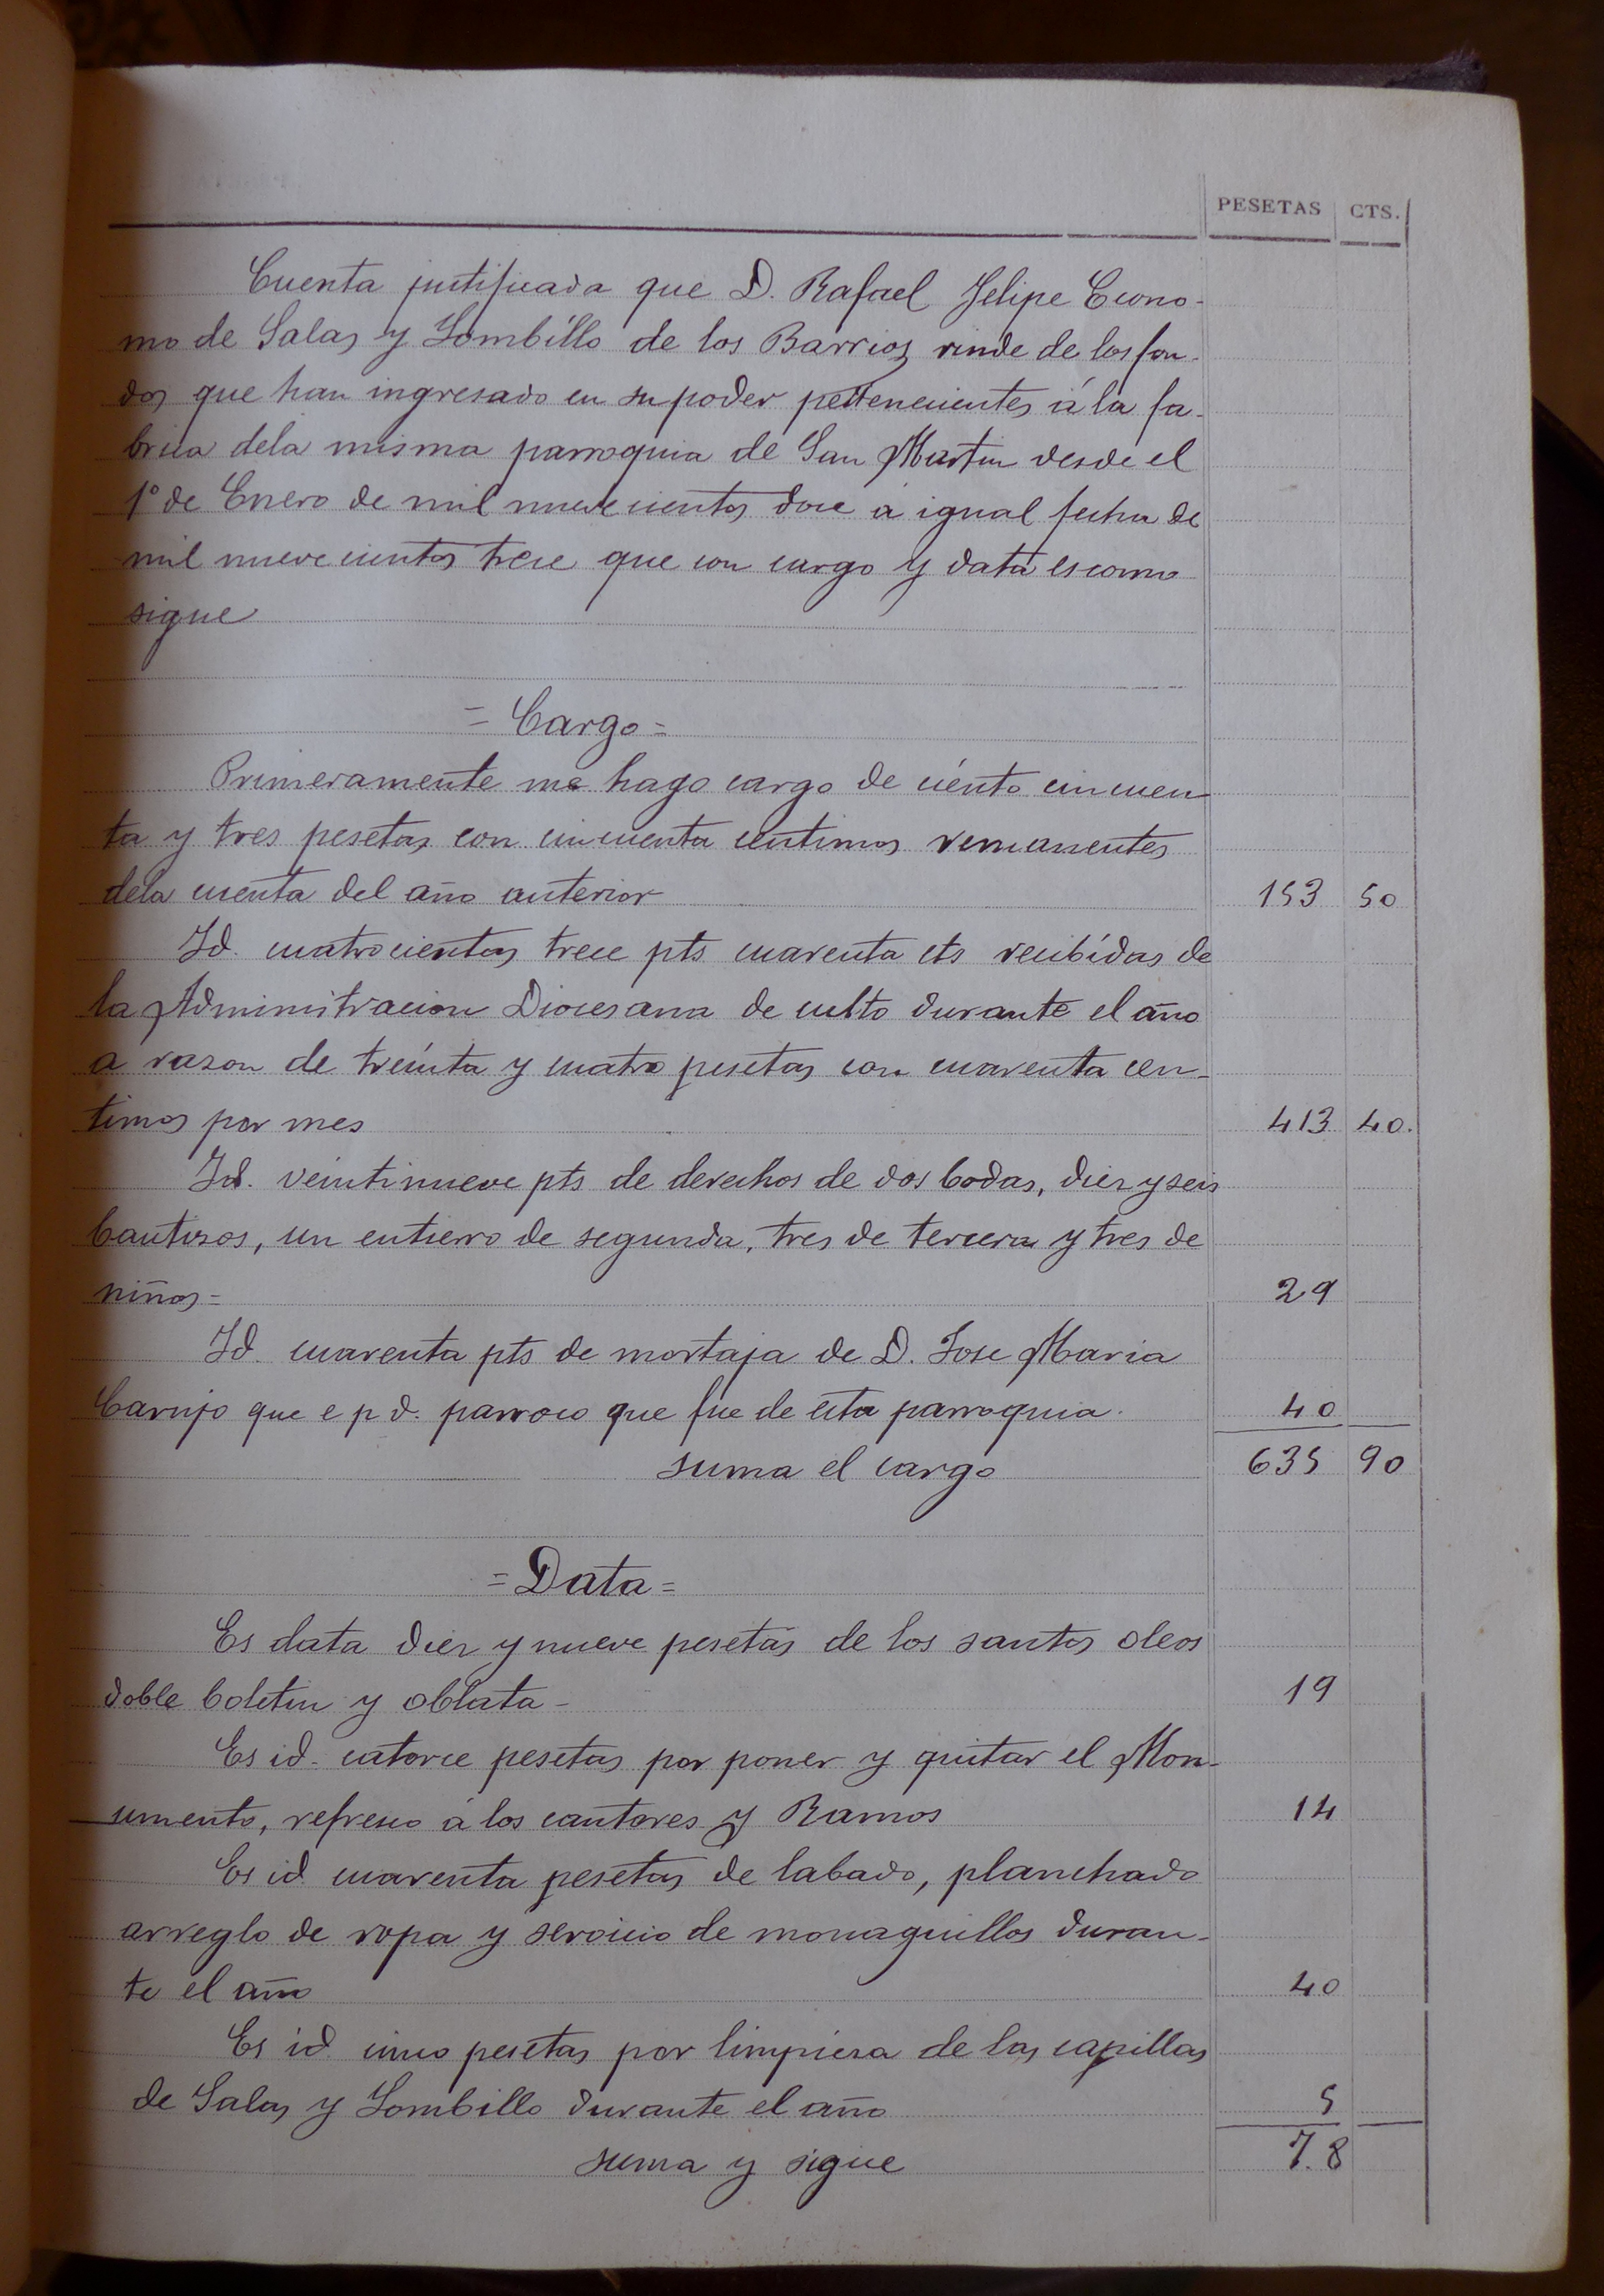 PESETAS CTS.
Cuenta justificada que D. Rafael Felipe Econo-
mo de Salas y Lombillo de los Barrios rinde de los fon-
dos que han ingresado en su poder pertenecientes á la fa-
brica dela misma parroquia de San Martin desde el
1º de Enero de mil nuevecientos doce a igual fecha de
mil nuevecientos trece que con cargo y data es como
sigue
= Cargo =
Primeramente me hago cargo de ciento cincuen
ta y tres pesetas con cincuenta centimos remanentes
dela cuenta del año anterior 153 50
Id. cuatrocientas trece pts cuarenta cts recibidas de
la Administracion Diocesana de culto durante el año
a rason de treinta y cuatro pesetas con cuarenta cen-
timos por mes 413 40.
Id. veintinueve pts de derechos de dos bodas, diez y seis
bautisos, un entierro de segunda, tres de tercera y tres de
niños = 29
Id. cuarenta pts de mortaja de D. Jose Maria
Carujo que e p d. parroco que fue de esta parroquia. 40
suma el cargo 635 90
= Data =
Es data diez y nueve pesetas de los santos oleos
doble boletin y oblata - 19
Es id. catorce pesetas por poner y quitar el Mon-
umento, refresco á los cantores y Ramos 14
Es id. cuarenta pesetas de labado, planchado
arreglo de ropa y servicio de monaguillos duran-
te el año 40
Es id. cinco pesetas por limpiesa de las capillas
de Salas y Lombillo durante el año 5
suma y sigue 7.8